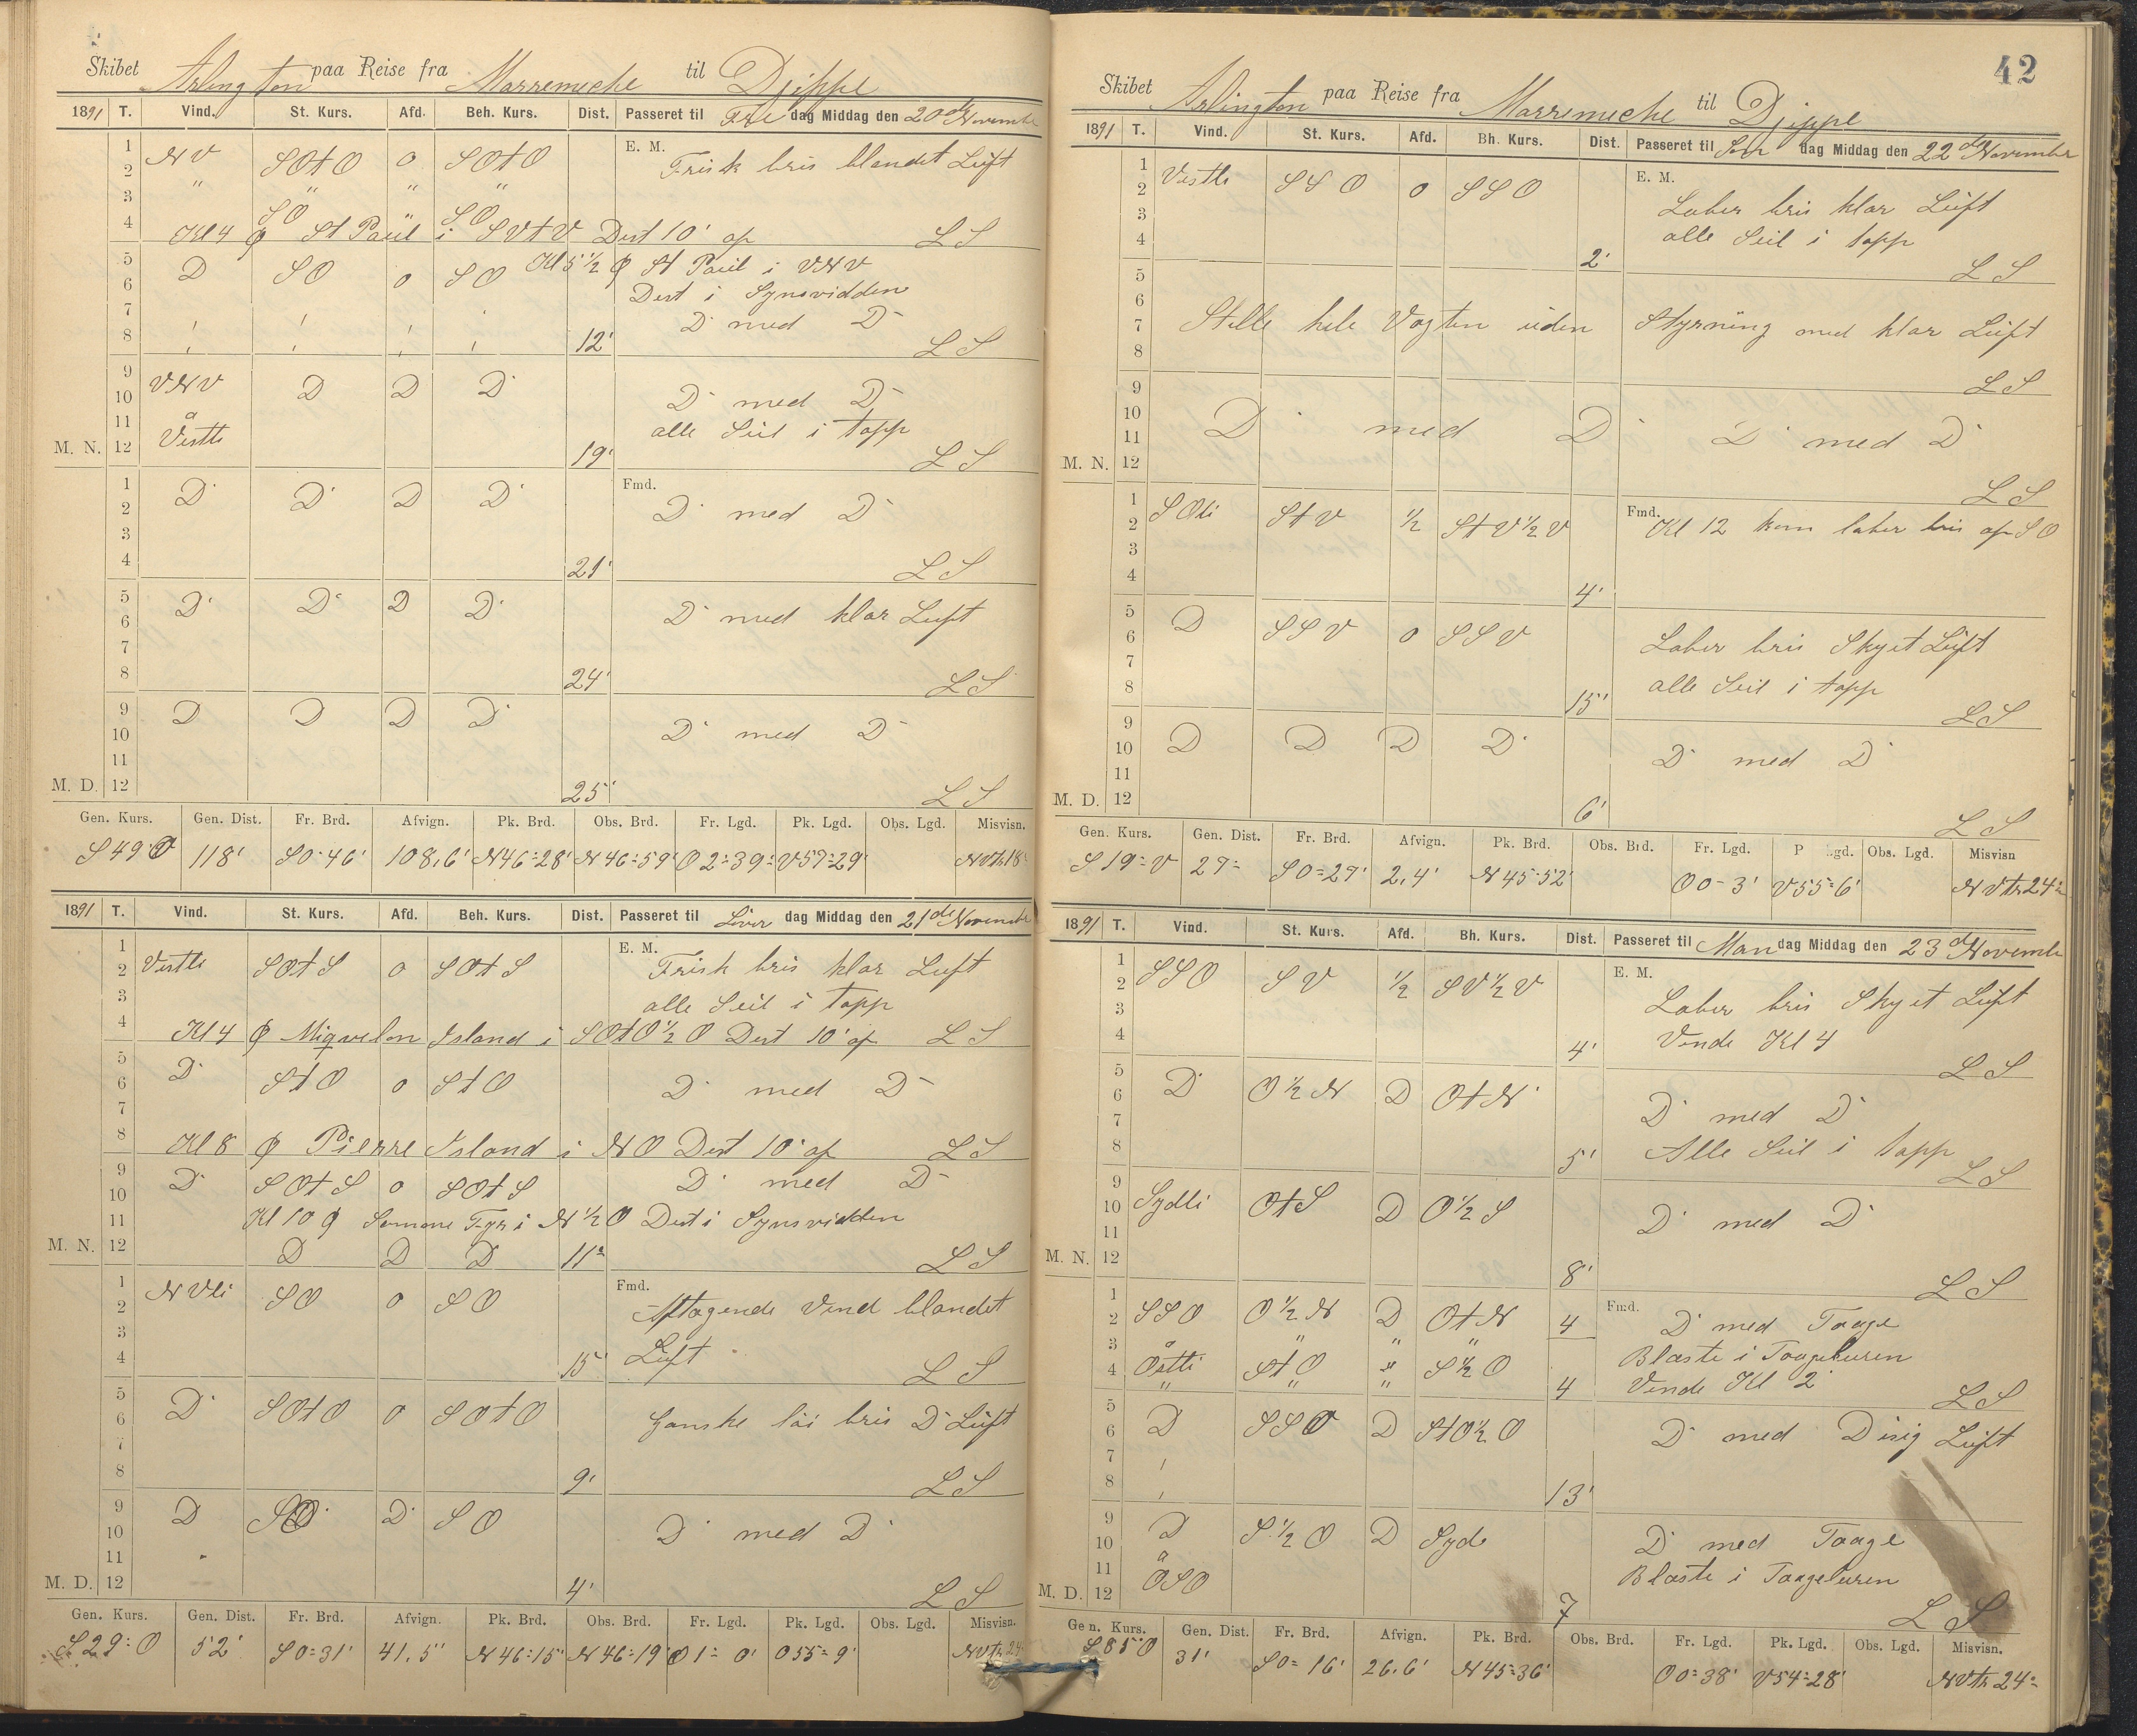 Skibet Arlington paa Reise fra Marremiche til Djeppe
1891 T. Vind. St. Kurs. Afd. Beh. Kurs. Dist. Passeret til Fre dag Middag den 20de November
1 E. M.
2 NV SOtO 0 SOtO Frisk bris blandet Luft
3 " " " "
SO " SO
4 Kl 4 φ St Paul i SVtV Dist 10' af LS
5 D SO 0 SO Kl 5 1/2 φ St Paul i VNV
6 Dist i Synsvidden
7 D med D
8 12' LS
9
10 VNV D D D D med D
11 å alle Seil i topp
M. N. 12 Vestli 19' LS
1 Fmd.
2 D D D D D med D
3
4 21' LS
5
6 D D D D D med klar Luft
7
8 24' LS
9
10 D D D D D med D
11
M. D. 12 25' LS
Gen. Kurs. Gen. Dist. Fr. Brd. Afvign. Pk. Brd. Obs. Brd. Fr. Lgd. Pk. Lgd. Obs. Lgd. Misvisn.
S 49° O 118' S 0°46' 108,6' N 46°28' N 46°59' O 2°39' V 57°29' NVtr 18°
1891 T. Vind. St. Kurs. Afd. Beh. Kurs. Dist. Passeret til Löver dag Middag den 21de November
1 E. M.
2 Vestli SOtS 0 SOtS Frisk bris klar Luft
3 alle Seil i topp
4 Kl 4 φ Miqvelon Island i SOtO 1/2 O Dist 10' af LS
5
6 D StO 0 StO D med D
7
8 Kl 8 φ Pierre Island i NO Dist 10' af LS
9
10 D SOtS 0 SOtS D med D
11 Kl 10 φ Fyr i N 1/2 O Dist i Synsvidden
M. N. 12 D D D 11' LS
1 Fmd.
2 NVli SO 0 SO Aftagende Vind blandet
3
4 15' Luft LS
5
6 D SOtO 0 SOtO Ganske löi bris D Luft
7
8 9' LS
9
10 D SO D SO D med D
11
M. D. 12 4' LS
Gen. Kurs. Gen. Dist. Fr. Brd. Afvign. Pk. Brd. Obs. Brd. Fr. Lgd. Pk. Lgd. Obs. Lgd. Misvisn.
S 29° O 52' S 0°31' 41,5' N 46°15' N 46°19' O 1° 0' O 55° 9' NVtr 24°
42
Skibet Arlington paa Reise fra Marremiche til Djeppe
1891 T. Vind. St. Kurs. Afd. Bh. Kurs. Dist. Passeret til Søn dag Middag den 22de November
1 E. M.
2 Vestli SSO 0 SSO Laber bris klar Luft
3 alle Seil i topp
4 2' LS
5
6
7 Stille hele Vagten uden Styrning med klar Luft
8 LS
9
10 D med D D med D
11
M. N. 12 LS
1 Fmd.
2 SOli StV 1/2 StV 1/2 V Kl 12 kom laber bris af SO
3
4 4'
5
6 D SSV 0 SSV Laber bris Skyet Luft
7
8 15' alle Seil i topp LS
9
10 D D D D D med D
11
M. D. 12 6' LS
Gen. Kurs. Gen. Dist. Fr. Brd. Afvign. Pk. Brd. Obs. Brd. Fr. Lgd. P Lgd. Obs. Lgd. Misvisn
S 19° V 29' S 0°27' 2,4' N 45°52' O 0° 3' V 55° 6' NVtr 24°
1891 T. Vind. St. Kurs. Afd. Bh. Kurs. Dist. Passeret til Man dag Middag den 23de November
1 E. M.
2 SSO SV 1/2 SV 1/2 V Laber bris Skyet Luft
3
4 4' Vende Kl 4 LS
5
6 D O 1/2 N D OtN D med D
7
8 5' Alle Seil i topp LS
9
10 Sydli OtS D O 1/2 S D med D
11
M. N. 12 8' LS
1 Fmd.
2 SSO O 1/2 N D OtN 4 D med Taage
3 å " " " Blæste i Taageluren
4 Östli StO " S 1/2 O
" " " 4 Vende Kl 2 LS
5
6 D SSO D StO 1/2 O D med Disig Luft
7
8 13'
9
10 D S 1/2 O D Syd D med Taage
11 å Blæste i Taageluren
M. D. 12 OSO 7 LS
Gen. Kurs. Gen. Dist. Fr. Brd. Afvign. Pk. Brd. Obs. Brd. Fr. Lgd. Pk. Lgd. Obs. Lgd. Misvisn.
S 85° O 31' S 0° 16' 26,6' N 45°36' O 0°38' V 54°28' NVtr 24°